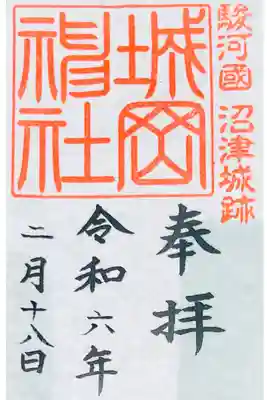 駿河國 沼津城跡
城岡
神社
奉拝
令和六年
二月十八日